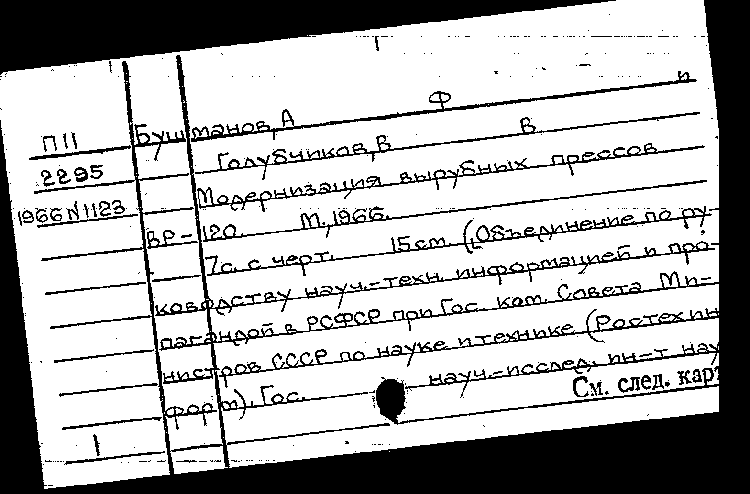 П11 Бушманов, А Ф и
2295 Голубчиков, В В
1966 N1123 Модернизация вырубных прессов
ВР-120. М., 1966.
7с. с черт. 15 см. (Объединение по ру-
ководству науч.-техн. информацией и про-
пагандой в РСФСР при Гос. ком. Совета Ми-
нистров СССР по науке и технике (Ростехин
форм). Гос. науч.-исслед. ин-т нау
См. след. карт